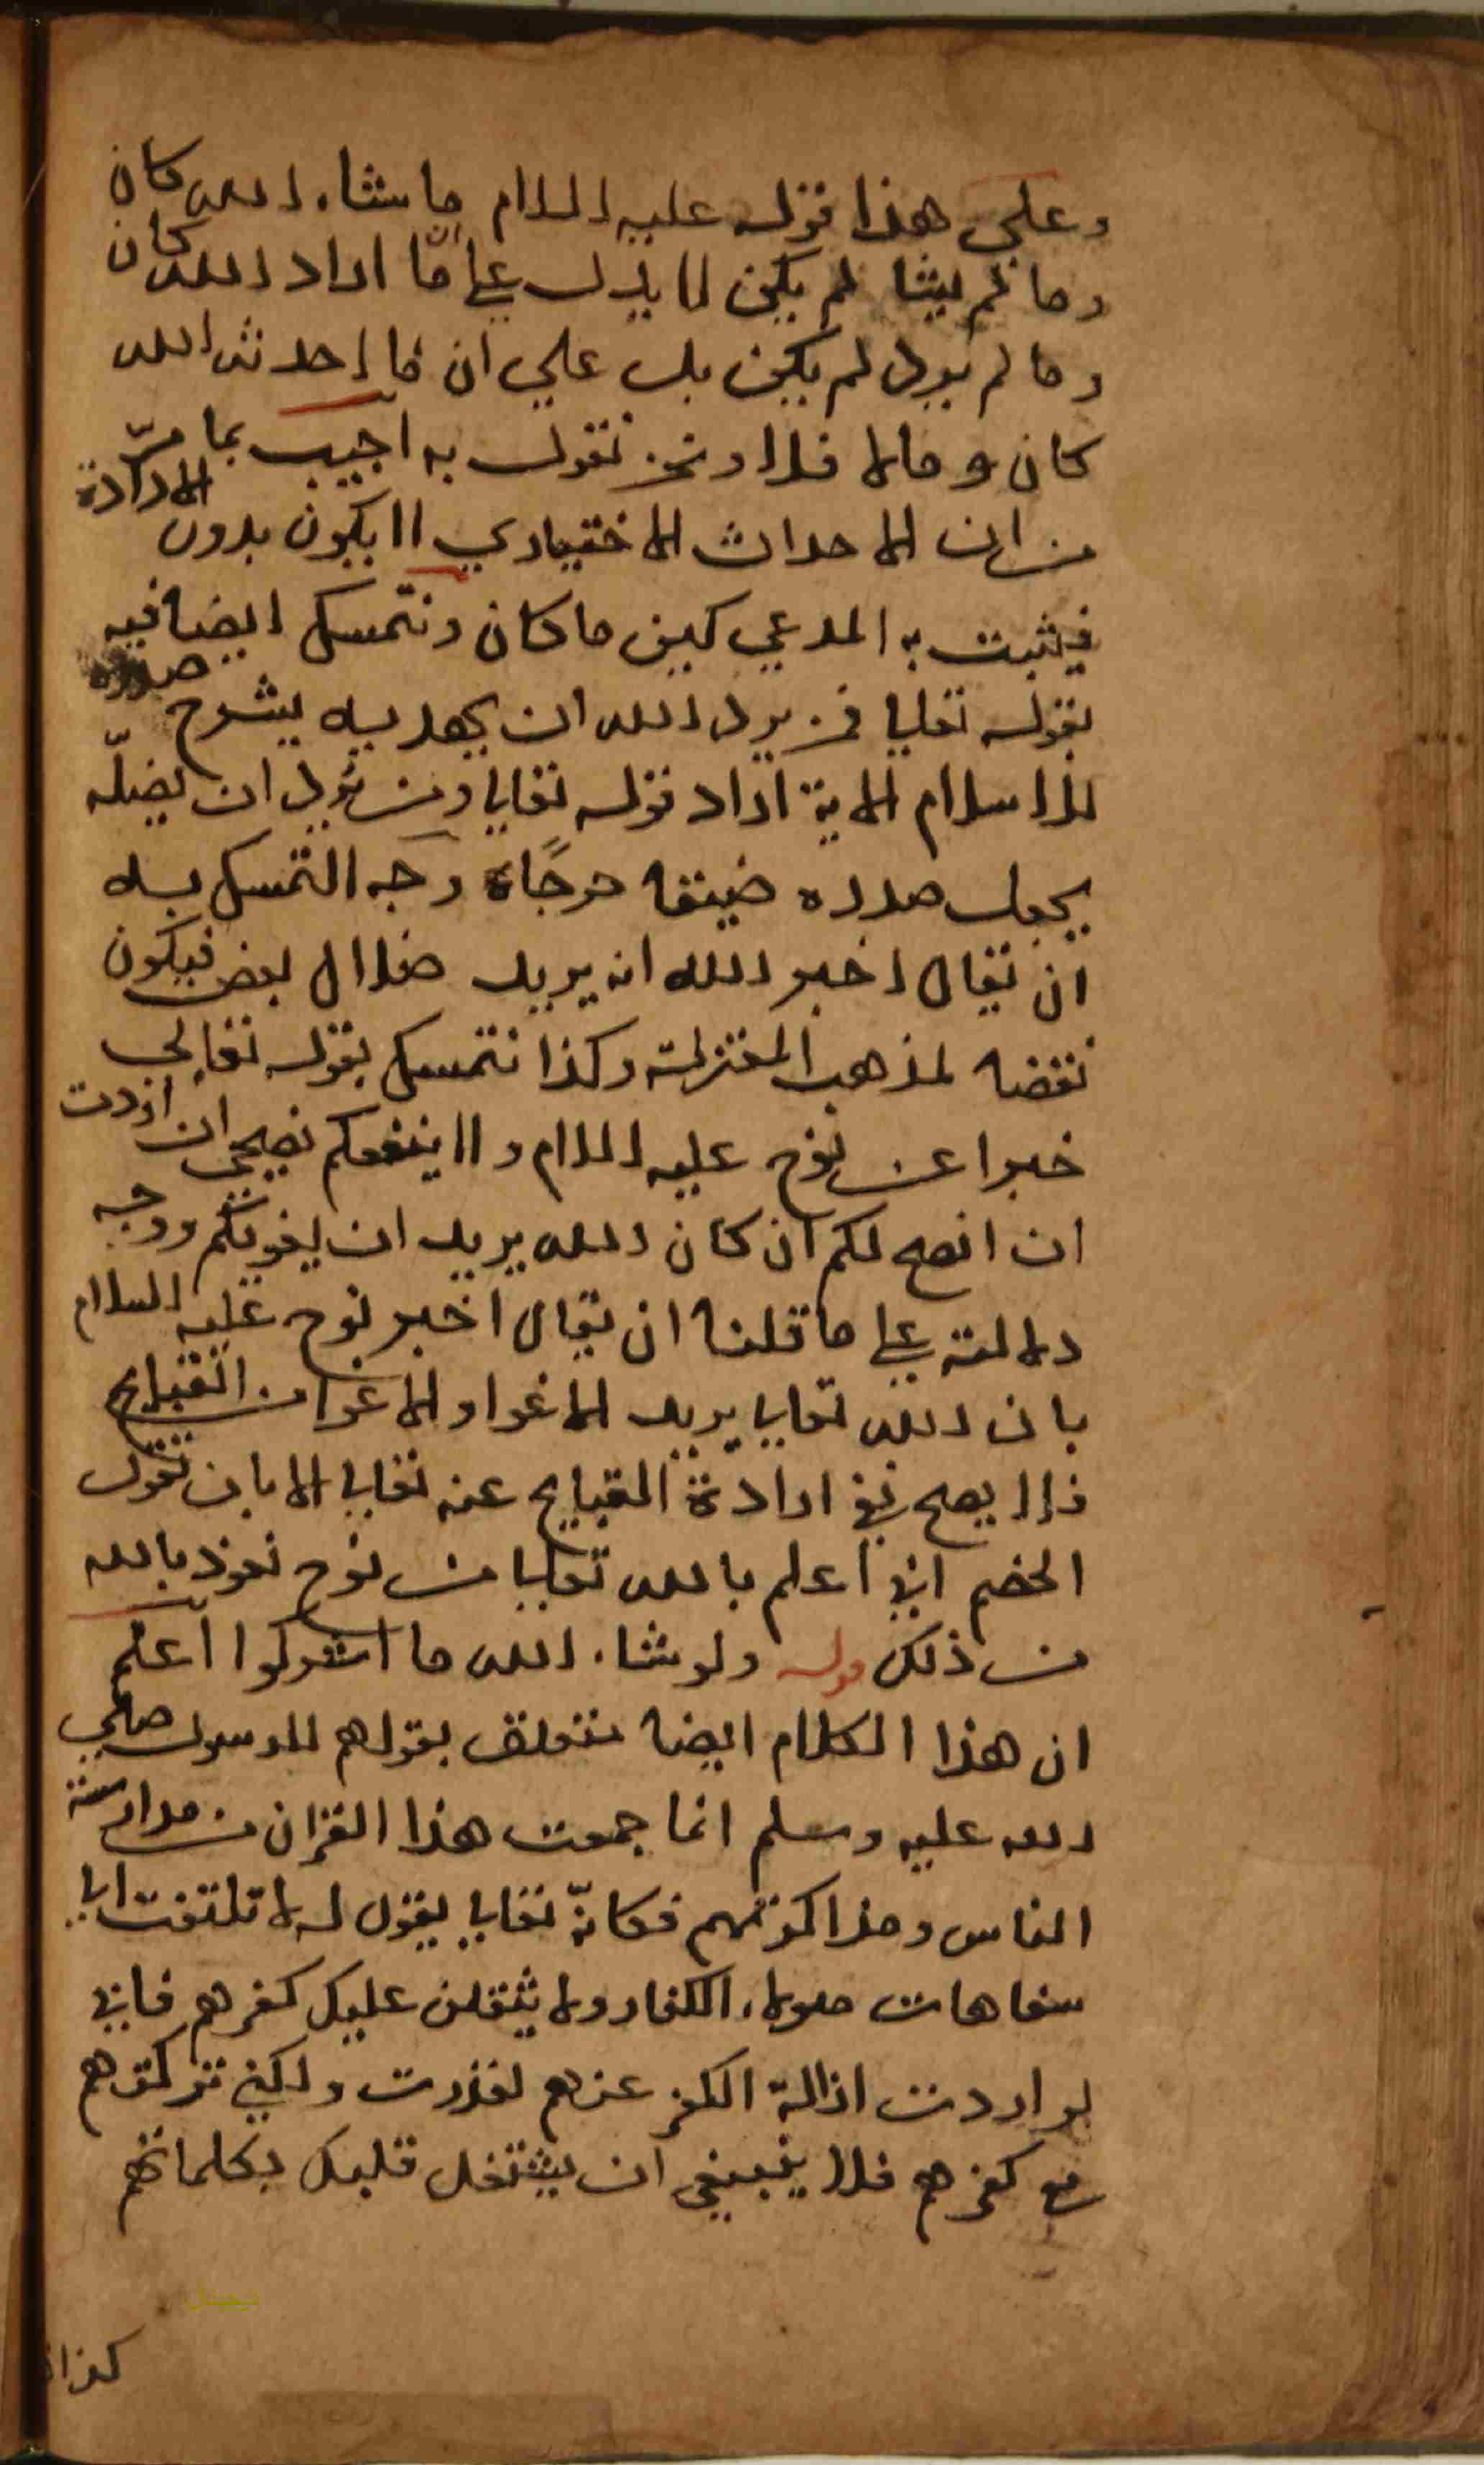 وعلى هذا قوله عليه السلام ما شاء الله كان
وما لم يشا لم يكن لا يدل على ان ما اراد الله كان
وما لم يرد لم يكن بل على ان ما احدث الله
كان وما لا فلا ونحن نقول به اجيب بما مرّ
من ان الاحداث الاختياري لا يكون بدون الارادة
فيثبت به المدعي كيف ما كان ونتمسك ايضا فيه
بقوله تعالى فمن يرد الله ان يهديه يشرح صدره
للاسلام الاية اراد قوله تعالى ومن يرد ان يضلّه
يجعل صدره ضيقا حرجًا وجه التمسك به
ان يقال اخبر الله انه يريد ضلال بعض فيكون
نقضا لمذهب المعتزلة وكذا نتمسك بقوله تعالى
خبرا عن نوح عليه السلام ولا ينفعكم نصحي ان اردت
ان انصح لكم ان كان الله يريد ان يغويكم ووجه
دلالته على ما قلنا ان يقال اخبر نوح عليه السلام
بان الله تعالى يريد الاغوا والاغوا من القبايح
فلا يصح نفي ارادة القبايح عنه تعالى الا بان نقول
الخصم اني اعلم بالله تعالى من نوح نعوذ بالله
من ذلك قوله ولو شاء الله ما اشركوا اعلم
ان هذا الكلام ايضا متعلق بقولهم للرسول صلى
الله عليه وسلم انما جمعت هذا القران من مدارسة
الناس ومذاكرتهم فكانّه تعالى يقول له لا تلتفت الى
سفاهات هولاء الكفار ولا يثقلن عليك كفرهم فاني
لو اردت ازالة الكفر عنهم لقدرت ولكني تركتهم
مع كفرهم فلا ينبغي ان يشتغل قلبك بكلماتهم
ديجيتال